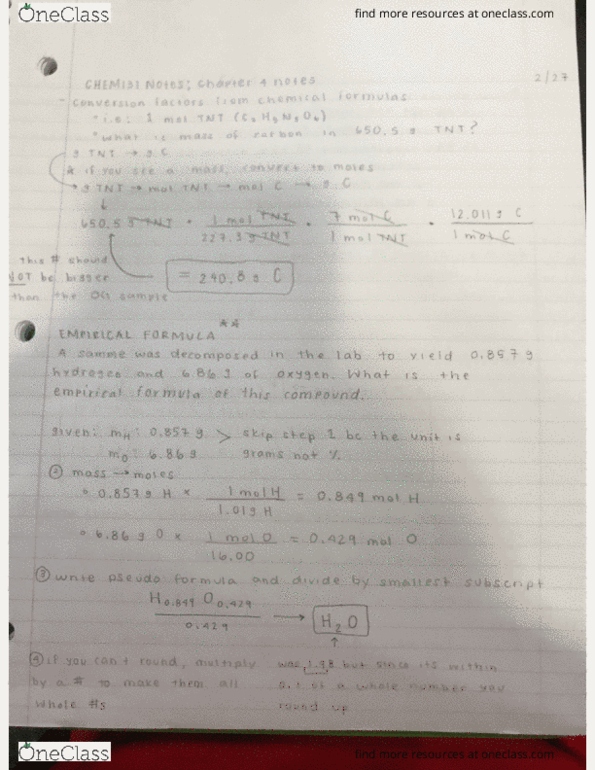 OneClass
find more resources at oneclass.com
2/27
CHEM121 NOTES; Chapter 4 notes
- conversion factors from chemical formulas
*i.e: 1 mol TNT (C7H5N3O6)
*what is mass of carbon in 650.5 g TNT?
g TNT → g C
* if you see a mass, convert to moles
→ g TNT → mol TNT → mol C → g C
650.5 g TNT • 1 mol TNT / 227.3 g TNT • 7 mol C / 1 mol TNT • 12.011 g C / 1 mol C
this # should
NOT be bigger
than the OG sample
= 240.8 g C
EMPIRICAL FORMULA **
A sample was decomposed in the lab to yield 0.857 g
hydrogen and 6.86 g of oxygen. What is the
empirical formula of this compound.
given: mH: 0.857 g > skip step 1 bc the unit is
mO: 6.86 g grams not %.
② mass → moles
• 0.857 g H × 1 mol H / 1.01 g H = 0.849 mol H
• 6.86 g O × 1 mol O / 16.00 = 0.429 mol O
③ write pseudo formula and divide by smallest subscript
H0.849 O0.429 / 0.429 → H2O
④ if you can't round, multiply
by a # to make them all
whole #s
was 1.98 but since its within
0.1 of a whole number you
round up
OneClass
find more resources at oneclass.com